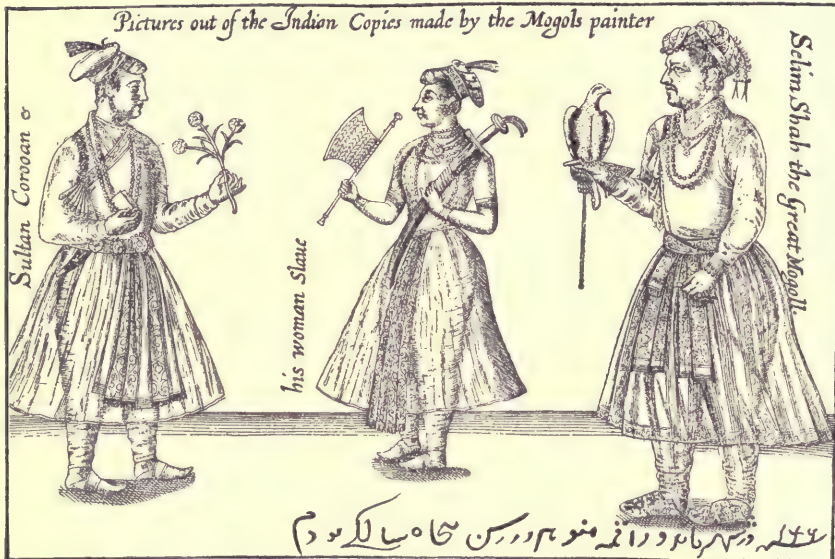 Pictures out of the Indian Copies made by the Mogols painter
Sultan Corooan &
his woman Slaue
Selim Shah the Great Mogoll.
در شهر ماندو در سن سالکی بودم